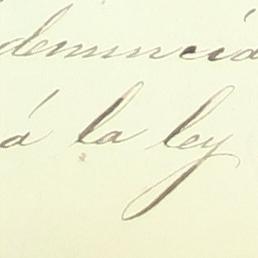 denuncia
á la ley